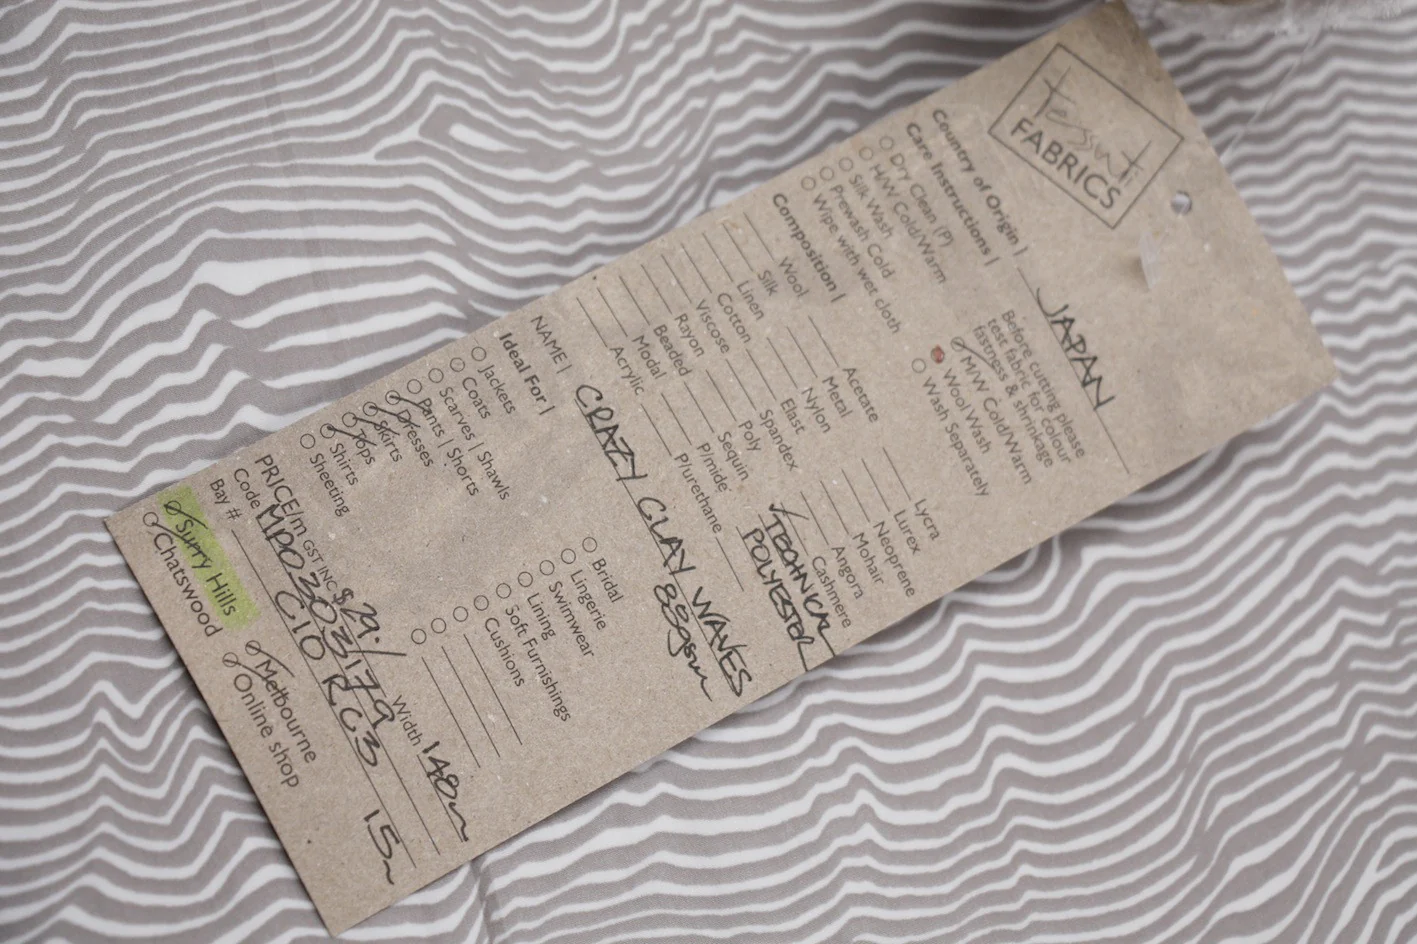 tessuti
FABRICS
Country of Origin | JAPAN
Care Instructions |
Before cutting please
test fabric for colour
fastness & shrinkage
Dry Clean (P)
H/W Cold/Warm
Silk Wash
Prewash Cold
Wipe, with wet cloth
M/W Cold/Warm
Wool Wash
Wash Separately
Composition |
Wool
Silk
Linen
Cotton
Viscose
Rayon
Beaded
Modal
Acrylic
Acetate
Metal
Nylon
Elast
Spandex
Poly
Sequin
P/mide
P/urethane
Lycra
Lurex
Neoprene
Mohair
Angora
Cashmere
TECHNICAL
POLYESTER
NAME | CRAZY CLAY WAVES
88gsm
Ideal For |
Jackets
Coats
Scarves | Shawls
Pants | Shorts
Dresses
Skirts
Tops
Shirts
Sheeting
Bridal
Lingerie
Swimwear
Lining
Soft Furnishings
Cushions
PRICE/m GST INC $29./ Width 148cm
Code MP030317a
Bay # C10 RC3 15m
Surry Hills
Chatswood
Melbourne
Online shop